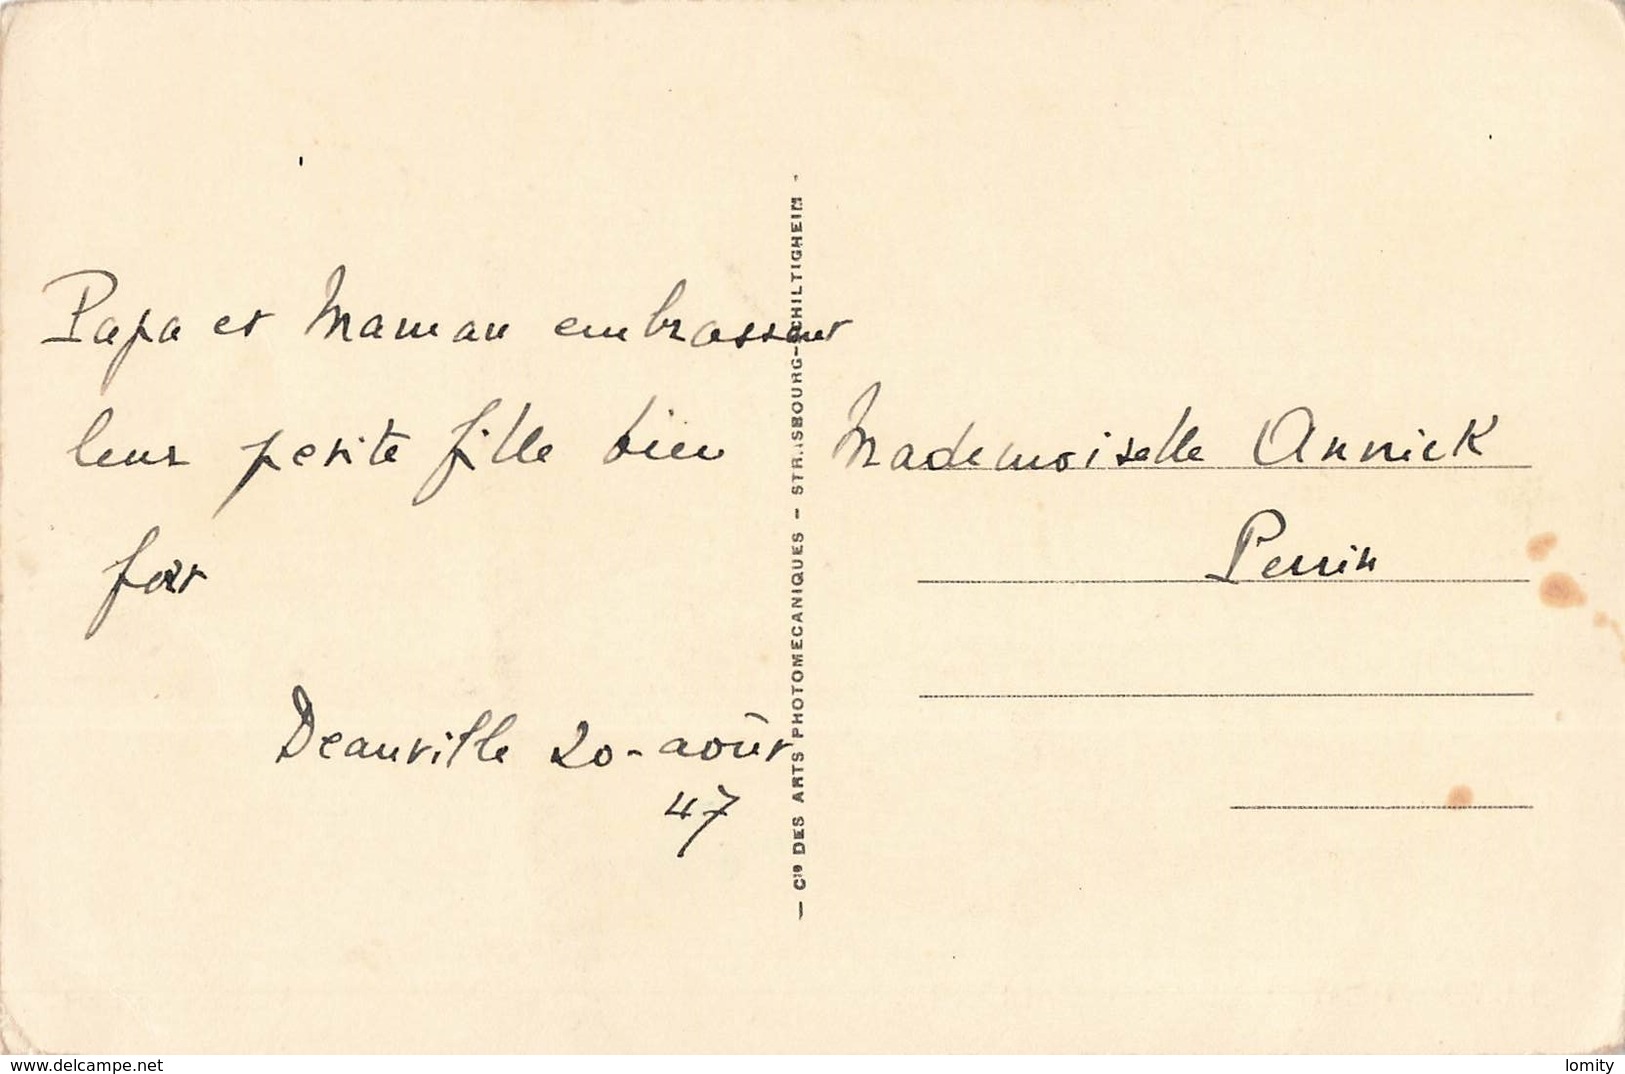 Papa et Maman embrassent
leur petite fille bien
fort
Deauville 20-août
47
— Cie DES ARTS PHOTOMECANIQUES — STRASBOURG-SCHILTIGHEIM -
Mademoiselle Annick
Perrin
www.delcampe.net
lomity